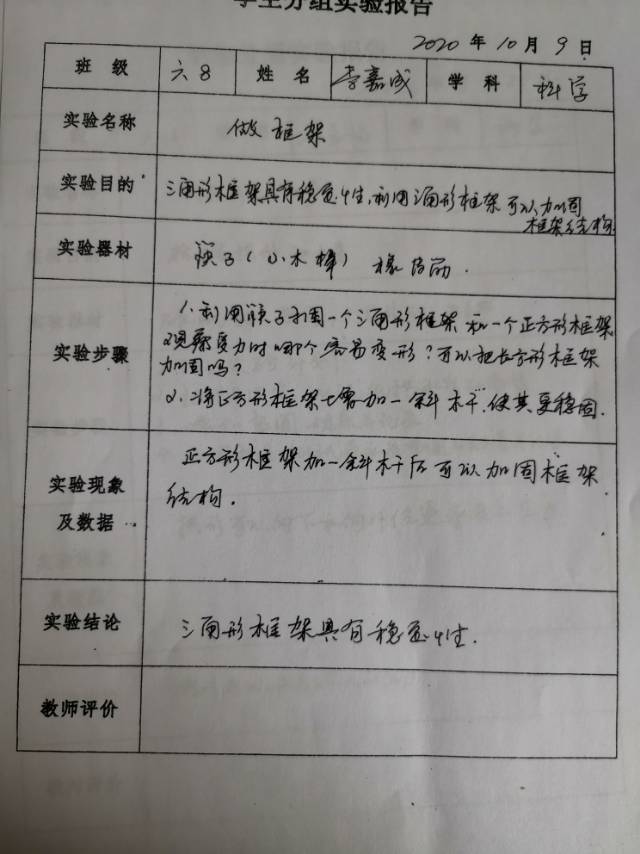 学生分组实验报告
2020 年 10 月 9 日
班 级 六8 姓 名 李嘉成 学 科 科学
实验名称 做框架
实验目的 三角形框架具有稳定性,利用三角形框架可以加固
框架结构
实验器材 筷子(小木棒) 橡皮筋.
实验步骤
1.利用筷子制固一个三角形框架和一个正方形框架
观察受力时哪个容易变形?可以把长方形框架
加固吗?
2.将正方形框架上增加一斜杆,使其更稳固.
实验现象
及数据
正方形框架加一斜杆后可以加固框架
结构.
实验结论 三角形框架具有稳定性.
教师评价